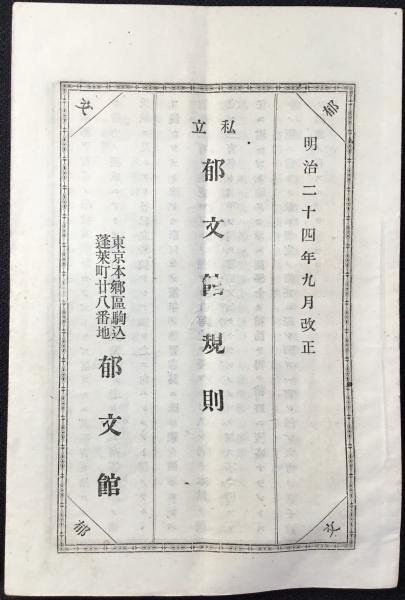 明治二十四年九月改正
私立
郁文館規則
東京本郷區駒込
蓬萊町廿八番地
郁文館
郁
文
郁
文